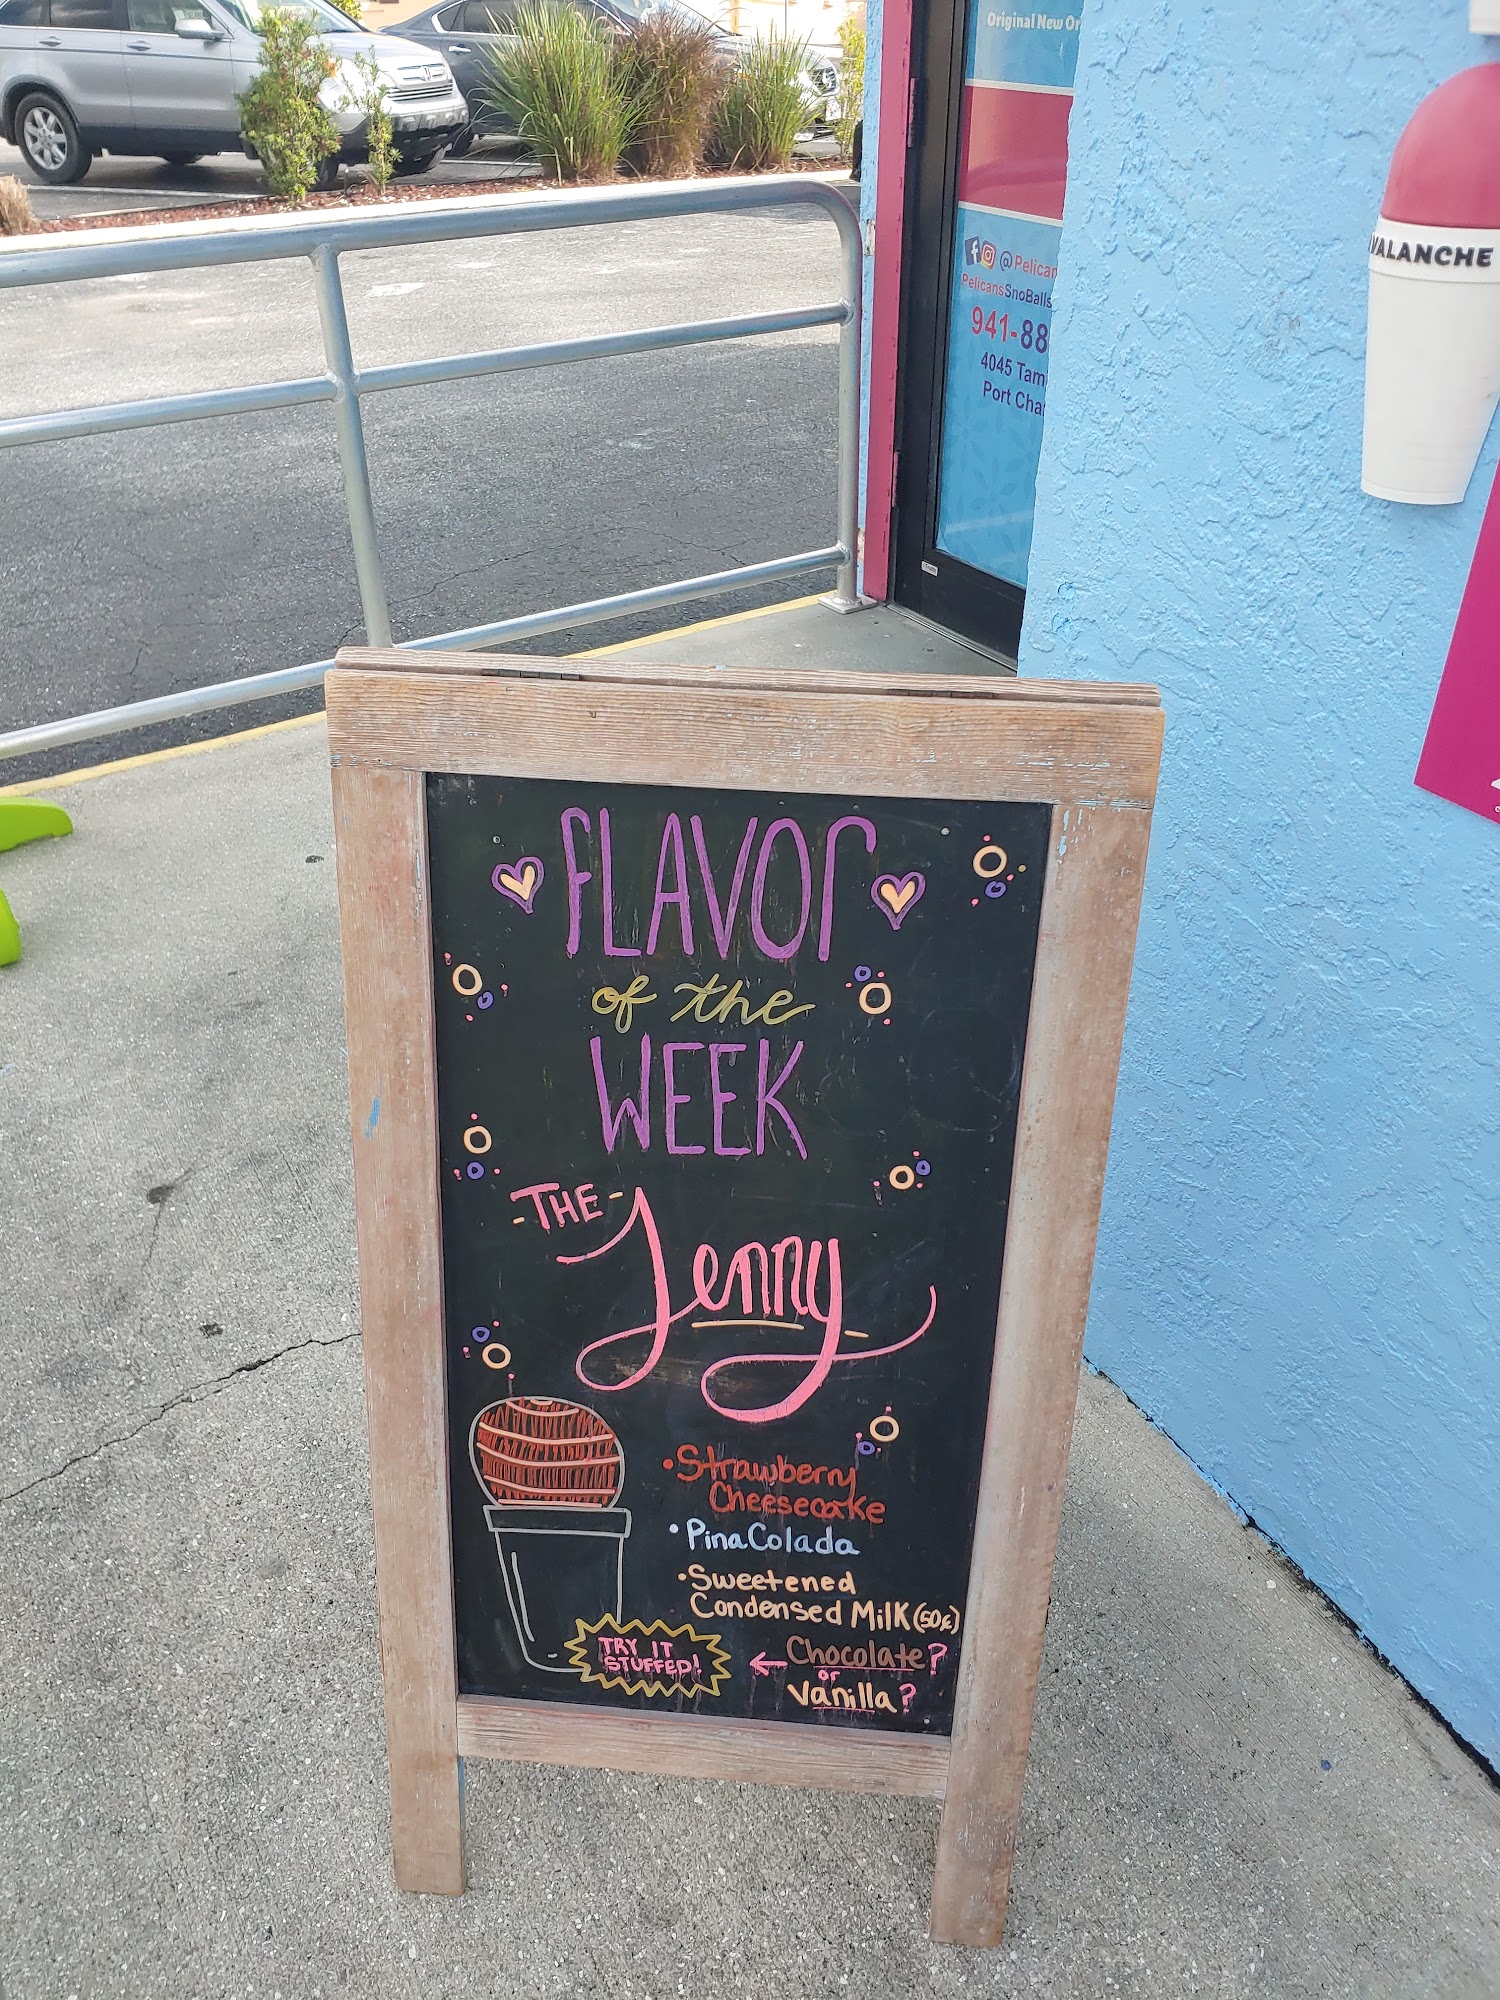 Original New
@
PelicansSnoBalls
941-88
4045
Port
AVALANCHE
FLAVOr
of the
WEEK
-THE-
Jenny
•Strawberry
Cheesecake
•Pina Colada
•Sweetened
Condensed Milk (50¢)
TRY IT
STUFFED!
← Chocolate?
or
Vanilla?